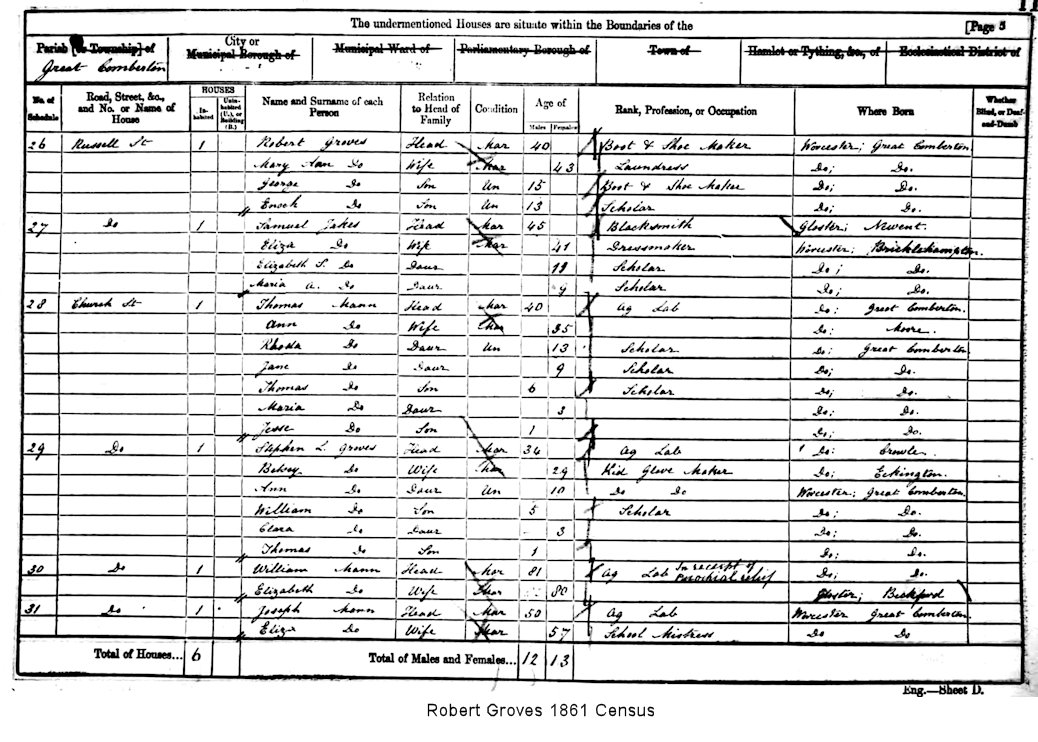 The undermentioned Houses are situate within the Boundaries of the [Page 5
Parish [or Township] of City or Municipal Borough of Municipal Ward of Parliamentary Borough of Town of Hamlet or Tything, &c., of Ecclesiastical District of
Great Comberton
No. of Schedule Road, Street, &c., and No. or Name of House HOUSES In-habited Unin-habited (U.), or Building (B.) Name and Surname of each Person Relation to Head of Family Condition Age of Males Females Rank, Profession, or Occupation Where Born Whether Blind, or Deaf-and-Dumb
26 Russell St 1 Robert Groves Head Mar 40 Boot & Shoe Maker Worcester; Great Comberton
Mary Ann Do Wife Mar 43 Laundress Do; Do.
George Do Son Un 15 Boot & Shoe Maker Do; Do.
Enoch Do Son Un 13 Scholar Do; Do.
27 Do 1 Samuel Jakes Head Mar 45 Blacksmith Gloster; Newent.
Eliza Do Wife Mar 41 Dressmaker Worcester; Bricklehampton.
Elizabeth S. Do Daur Scholar Do; Do.
Maria A. Do Daur 9 Scholar Do; Do.
28 Church St 1 Thomas Mann Head Mar 40 Ag Lab Do: Great Comberton.
Ann Do Wife Mar 35 Do: Moore.
Rhoda Do Daur Un 13 Scholar Do: Great Comberton
Jane Do Daur 9 Scholar Do; Do.
Thomas Do Son 6 Scholar Do; Do.
Maria Do Daur 3 Do: Do.
Jesse Do Son 1 Do; Do.
29 Do 1 Stephen L. Groves Head Mar 34 Ag Lab Do: Crowle.
Betsey Do Wife Mar 29 Kid Glove Maker Do; Eckington.
Ann Do Daur Un 10 Do Do Worcester; Great Comberton.
William Do Son 5 Scholar Do; Do.
Clara Do Daur 3 Do; Do.
Thomas Do Son 1 Do; Do.
30 Do 1 William Mann Head Mar 81 Ag Lab In receipt of Parochial relief Do; Do.
Elizabeth Do Wife Mar 80 Gloster; Beckford
31 Do 1 Joseph Mann Head Mar 50 Ag Lab Worcester Great Comberton.
Eliza Do Wife Mar 57 School Mistress Do Do
Total of Houses... 6 Total of Males and Females... 12 13
Eng.—Sheet D.
Robert Groves 1861 Census